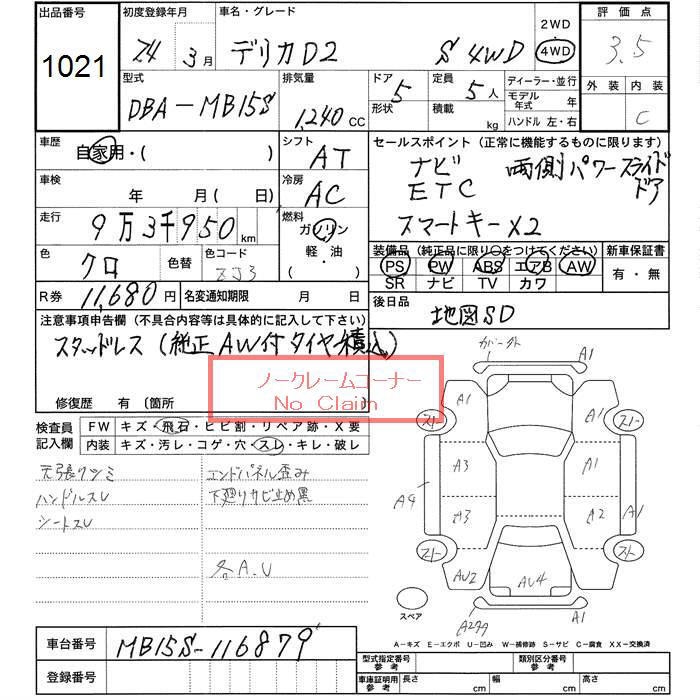 出品番号
1021
初度登録年月
24 3月
車名・グレード
デリカD2 S 4WD
2WD
4WD
評価点
3.5
外装 内装
C
型式
DBA-MB15S
排気量
1,240 CC
ドア
5
形状
定員
5人
積載
kg
ディーラー・並行
モデル年式 年
ハンドル 左・右
車歴
自家用・( )
シフト
AT
セールスポイント (正常に機能するものに限ります)
ナビ 両側パワースライドドア
ETC
スマートキーX2
車検
年 月( 日)
冷房
AC
走行
9万3千950 km
燃料
ガソリン
軽・油
・( )
色
クロ
色替
色コード
ZJ3
装備品 (純正品に限り○をつけてください)
PS PW ABS エアB AW
SR ナビ TV カワ
新車保証書
有・無
R券 11,680円
名変通知期限 月 日
後日品
地図SD
注意事項申告欄 (不具合内容等は具体的に記入して下さい)
スタッドレス(純正AW付タイヤ積込)
ノークレームコーナー
No Claim
修復歴 有 〔箇所
検査員記入欄
FW キズ・飛石・ヒビ割・リペア跡・X要
内装 キズ・汚レ・コゲ・穴・スレ・キレ・破レ
天張クツミ
ハンドルスレ
シートスレ
エンドパネル歪み
下廻りサビ止め黒
各A.U
A1
A1
A1
スト
スト
A3
A1
A9
A3
A2
A1
スト
スト
AU2
AU4
スペア
A1
A-キズ E-エクボ U-凹み W-補修跡 S-サビ C-腐食 XX-交換済
車台番号
MB15S-116879
登録番号
型式指定番号
参考
類別区分番号
参考
車庫証明用
参考
長さ cm
幅 cm
高さ cm